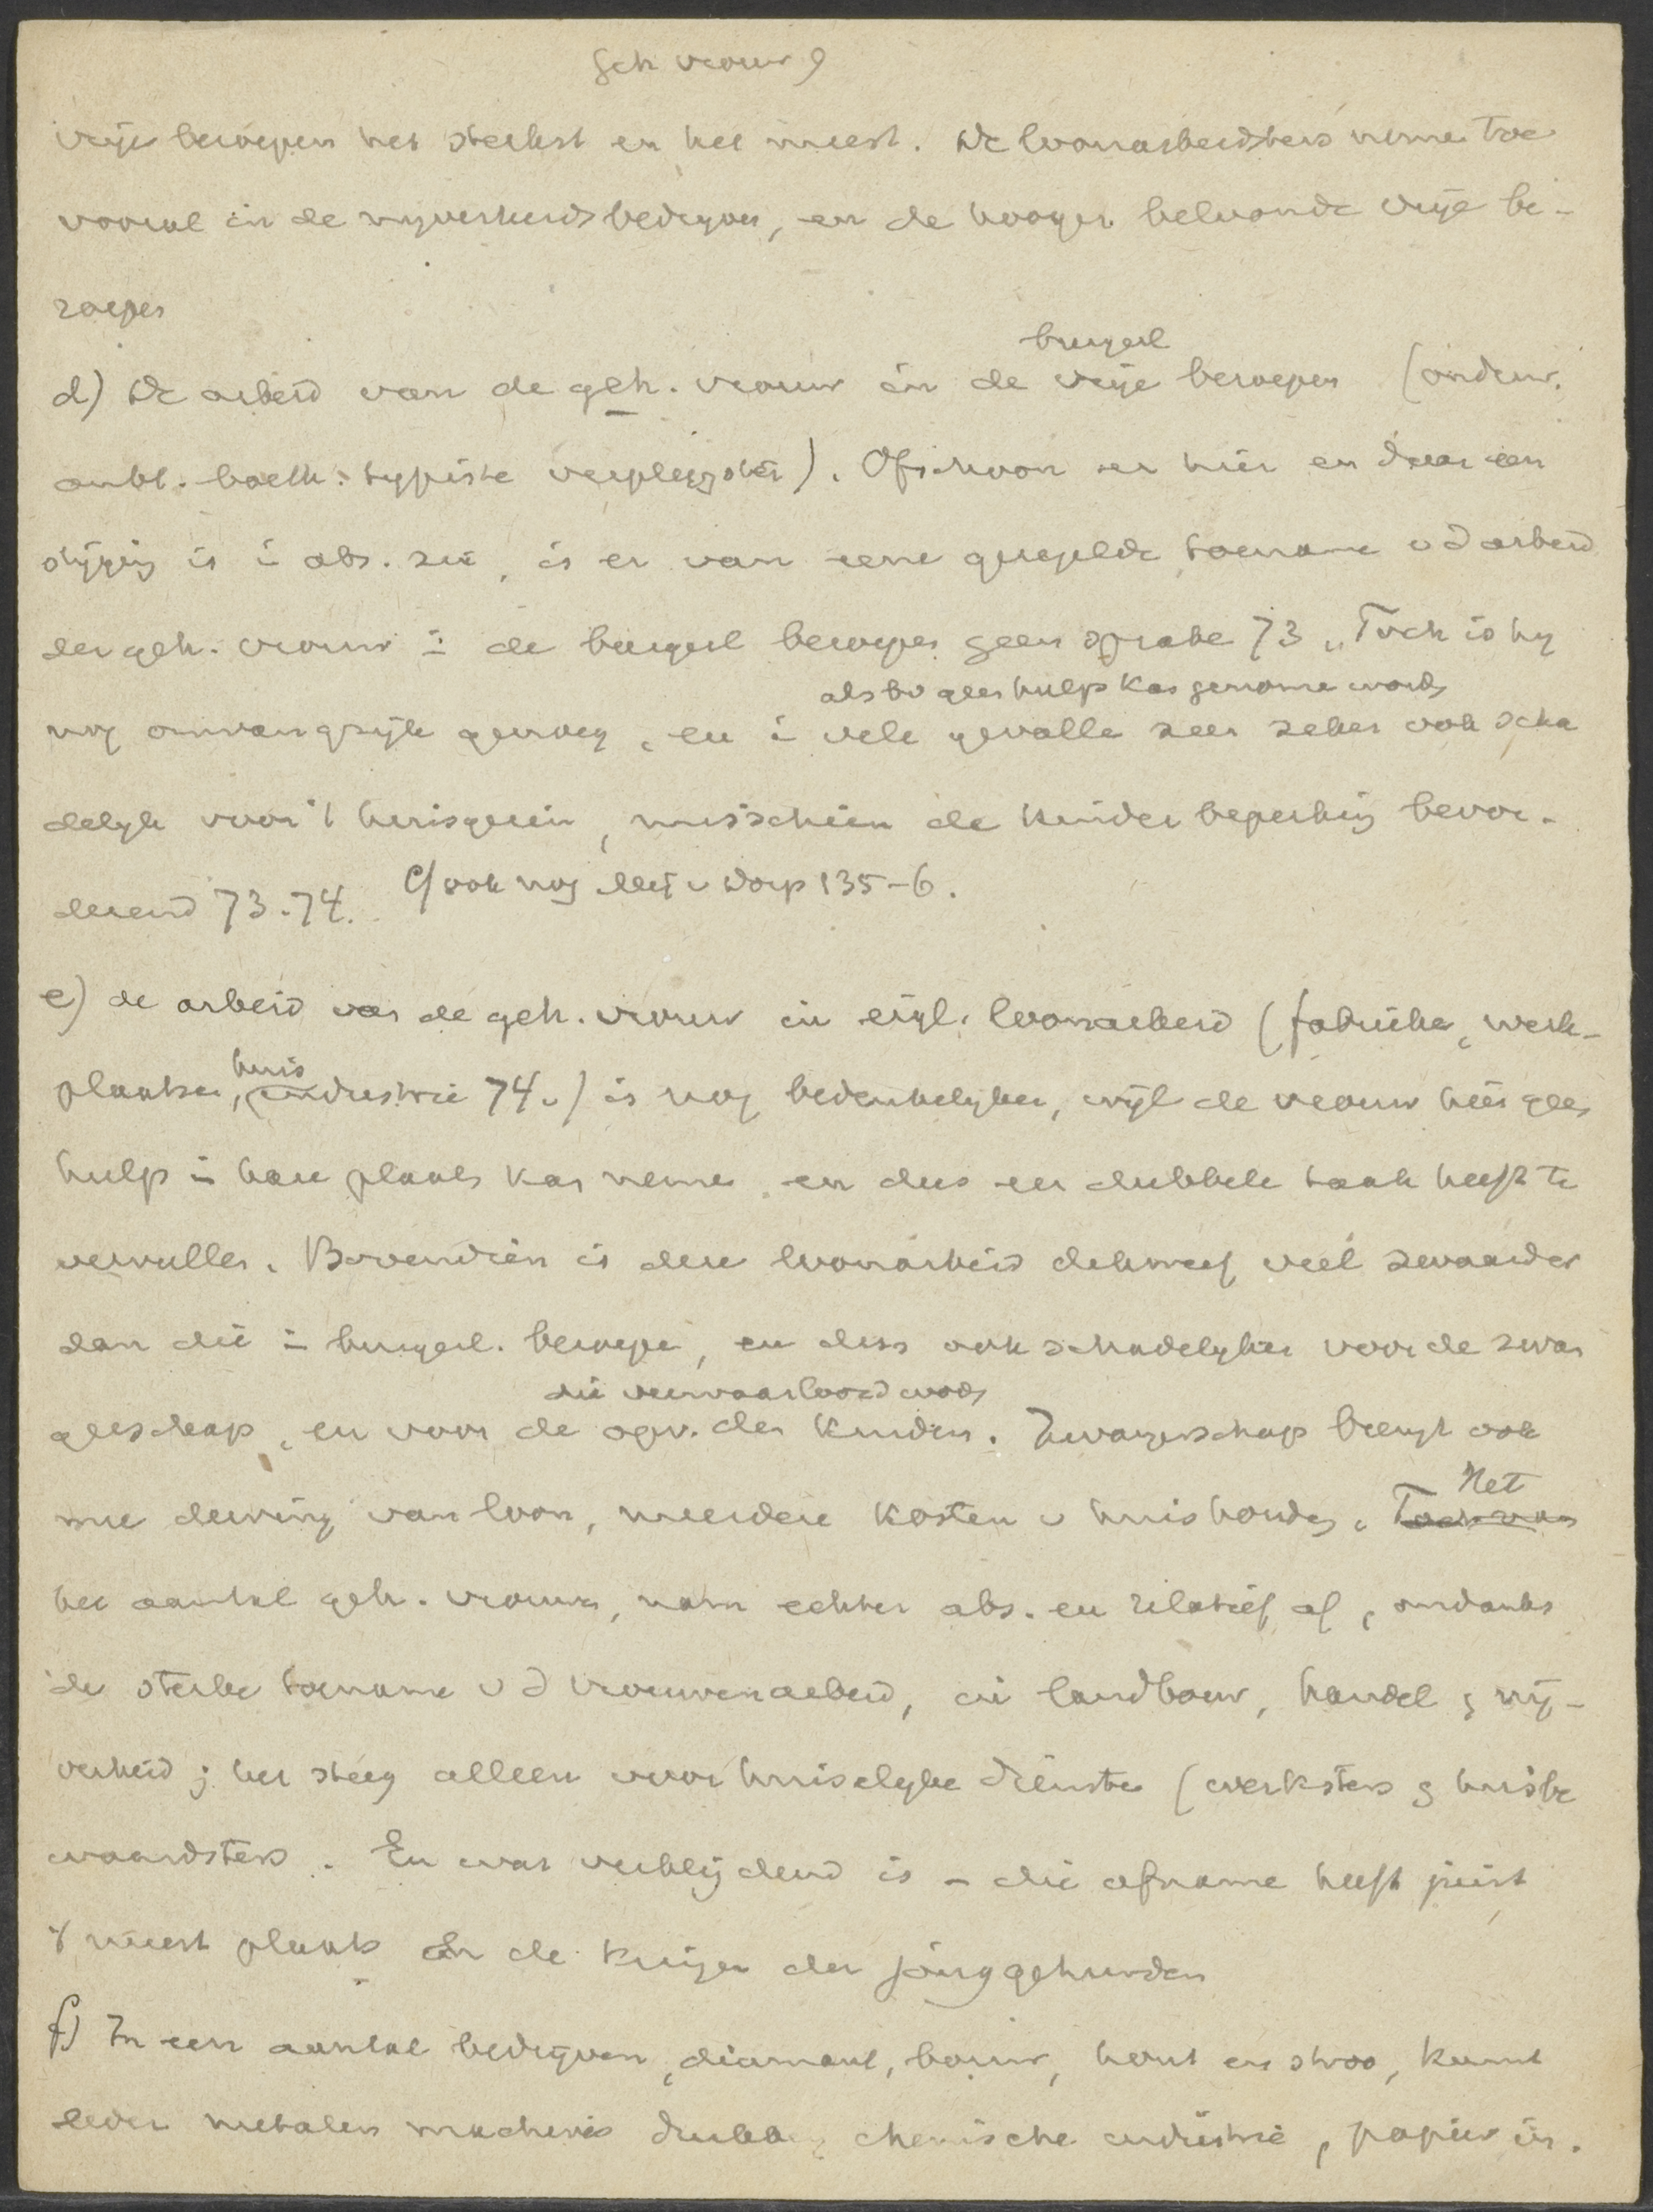 Geh vrouw 9
vrije beroepen het sterkst en het meest. De loonarbeidsters neme toe
vooral in de nyverheidsbedryven, en de hooger beloonde vrije be-
roepen
burgerl
d) De arbeid van de geh. vrouw in de vrije beroepen (onderw.
ambt. boekh. typiste verpleegster). Ofschoon er hier en daar een
stijging is i abs. zin, is er van eene geregelde toename v d arbeid
der geh. vrouw i de burgerl beroepen geen sprake 73 „Toch is hy
als bv geen hulp kan genome worde
nog omvangrijk genoeg, en i vele gevalle zeer zeker ook scha
delyk voor 't huisgezin, misschien de kinderbeperking bevor-
derend 73-74. Cf ook nog v Dorp 135-6.
e) de arbeid van de geh. vrouw in eigl. loonarbeid (fabrieke, werk-
huis
plaatsen, industrie 74v) is nog bedenkelyker, wijl de vrouw hier geen
hulp i hare plaats kan neme en dus een dubbele taak heeft te
vervullen. Bovendien is deze loonarbeid dikwerf veel zwaarder
dan die i burgerl. beroepe, en dus ook schadelyker voor de zwan
die verwaarloosd worde
gerschap, en voor de opv. der kinderen. Zwangerschap brengt ook
mee derving van loon, meerdere kosten v huishoudg. Toch van
Het
het aantal geh. vrouwen, nam echter abs. en relatief af, ondanks
de sterke toename v d vrouwenarbeid, in landbouw, handel & nij-
verheid; het steeg alleen voor huiselyke diensten (werksters & huisbe
waardsters. En wat verblijdend is – die afname heeft juist
't meest plaats in de kringen der jonggehuwden
f) In een aantal bedrijven, diamant, bouw, hout en stroo, kunst
leder metalen machines drukkery chemische industrie, papier in.